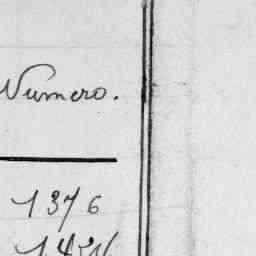 Numero.
1376